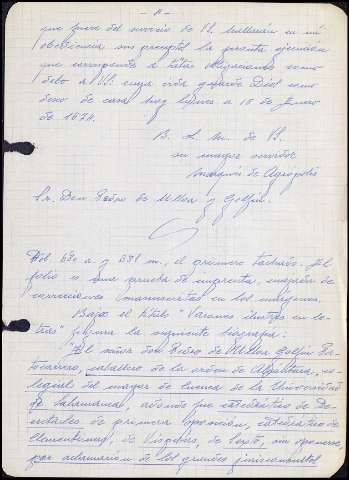 - 8 -
que fuere del servicio de VS. hallarán en mi
obediencia sin excepción la pronta ejecución
que corresponde a tantas obligaciones como
debo a VS. cuya vida guarde Dios como
deseo de casa hoy lunes a 15 de Junio
de 1674.
B. L. M. de VS.
su mayor servidor
Marqués de Agropolis
Sr. Don Pedro de Ulloa y Golfín.
Fol. 690 a y 691 m., el primero tachado. El
folio es una prueba de imprenta, enojosa de
correcciones manuscritas en los márgenes.
Bajo el título "Varones ilustres en le-
tras" figura la siguiente biografía:
"El señor don Pedro de Ulloa Golfín Por-
tocarrero, caballero de la orden de Alcántara, co-
legial del mayor de Cuenca de la Universidad
de Salamanca, adonde fue catedrático de De-
cretales de primera oposición, catedrático de
Clementinas, de Vísperas, de Sexto, sin oponerse,
por aclamación de los grandes jurisconsultos